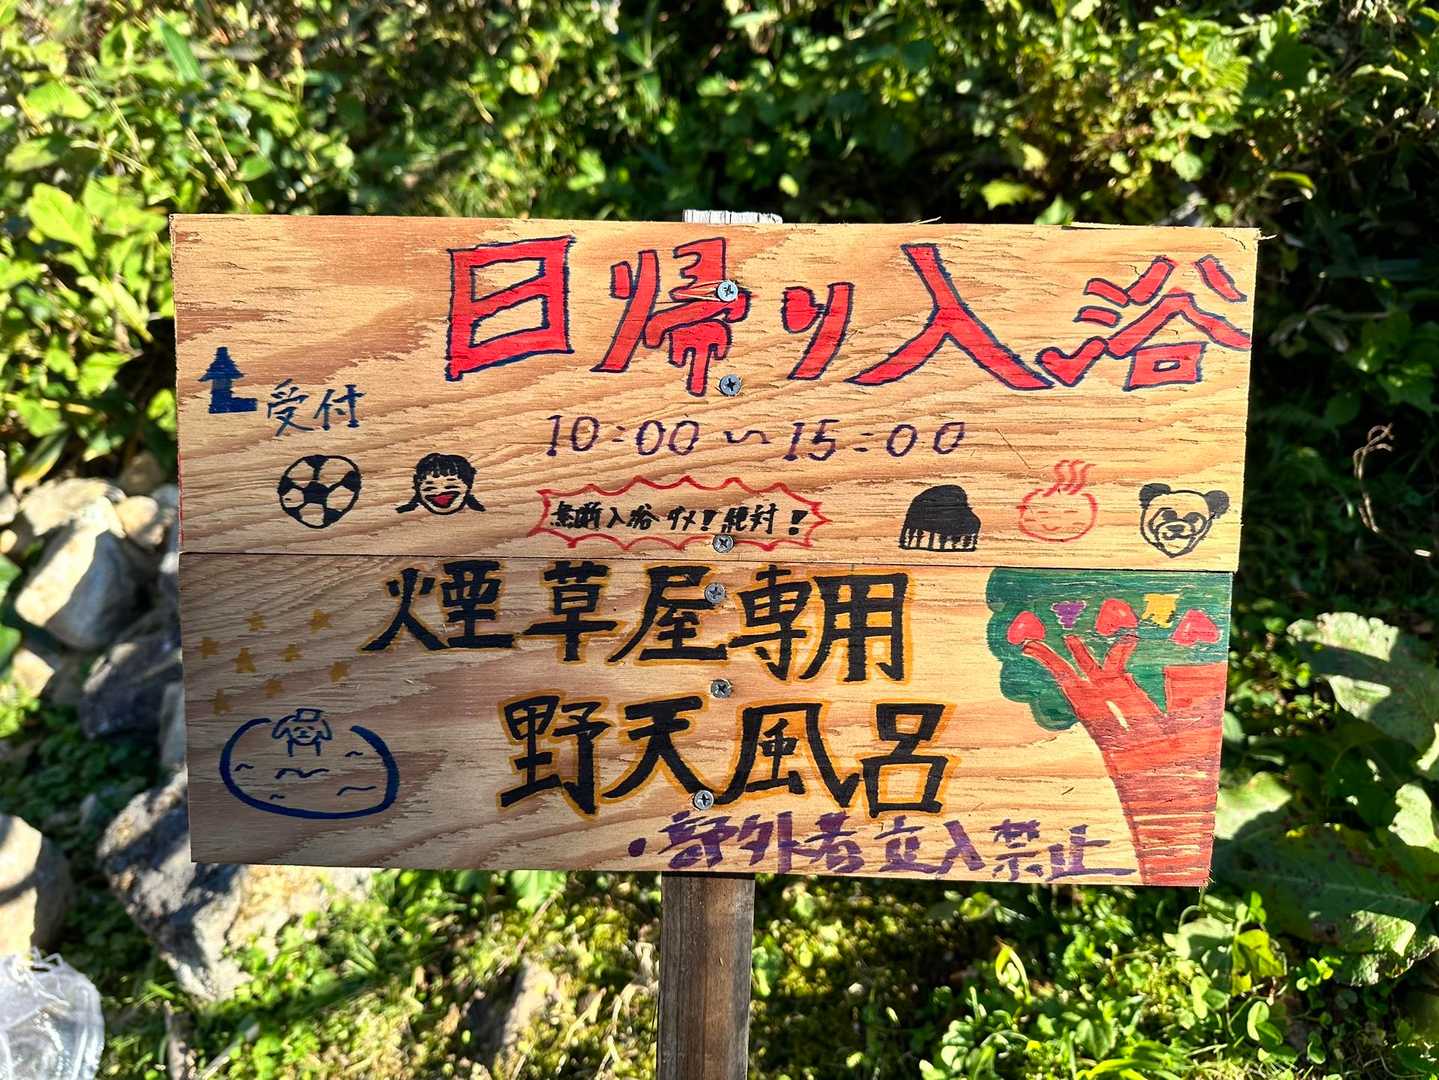 日帰り入浴
受付
10:00〜15:00
無断入浴ダメ!絶対!
煙草屋専用
野天風呂
・部外者立入禁止